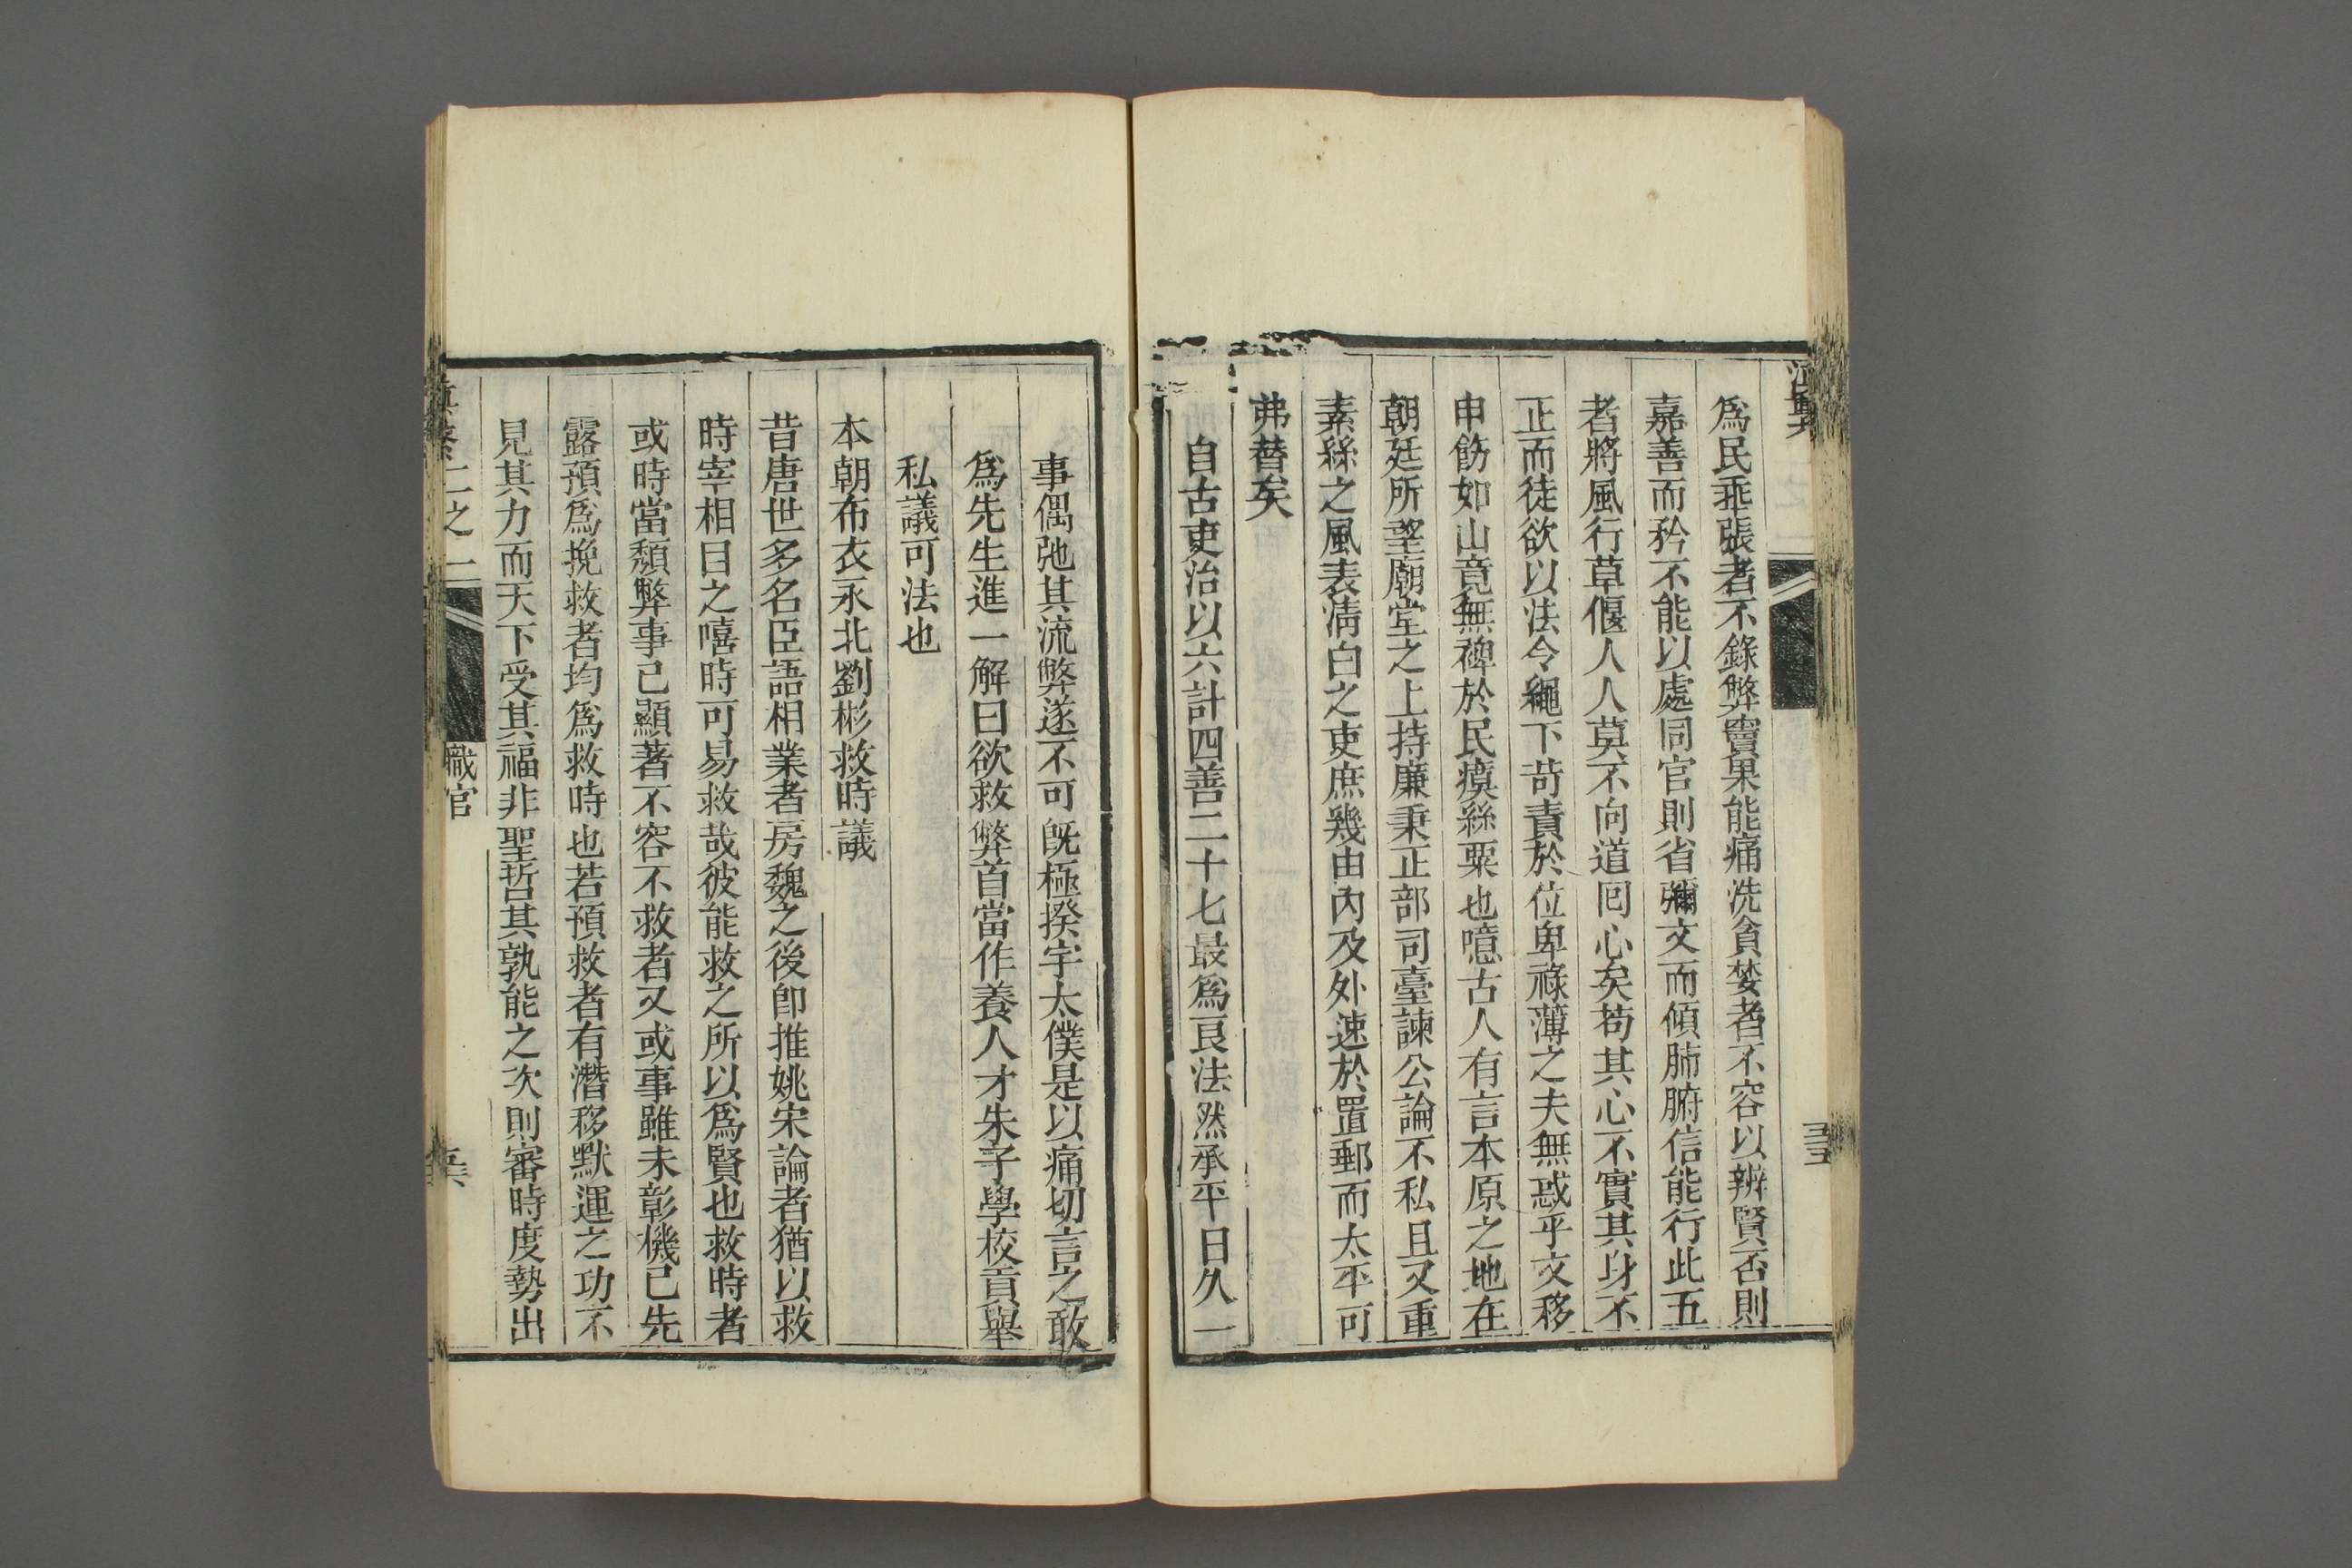 爲民乖張者不錄弊竇果能痛洗貪婪者不容以辨賢否則
嘉善而矜不能以處同官則省彌文而傾肺腑信能行此五
者將風行草偃人人莫不向道囘心矣苟其心不實其身不
正而徒欲以法令繩下苛責於位卑祿薄之夫無惑乎文移
申飭如山竟無裨於民瘼絲粟也噫古人有言本原之地在
朝廷所望廟堂之上持廉秉正部司臺諫公論不私且又重
素絲之風表淸白之吏庶幾由內及外速於置郵而太平可
弗替矣
自古吏治以六計四善二十七最爲良法然承平日久一
事偶弛其流弊遂不可旣極揆宇太僕是以痛切言之敢
爲先生進一解曰欲救弊首當作養人才朱子學校貢舉
私議可法也
本朝布衣永北劉彬救時議
昔唐世多名臣語相業者房魏之後卽推姚宋論者猶以救
時宰相目之嘻時可易救哉彼能救之所以爲賢也救時者
或時當頹弊事已顯著不容不救者又或事雖未彰機已先
露預爲挽救者均爲救時也若預救者有潛移默運之功不
見其力而天下受其福非聖哲其孰能之次則審時度勢出
二之二
職官